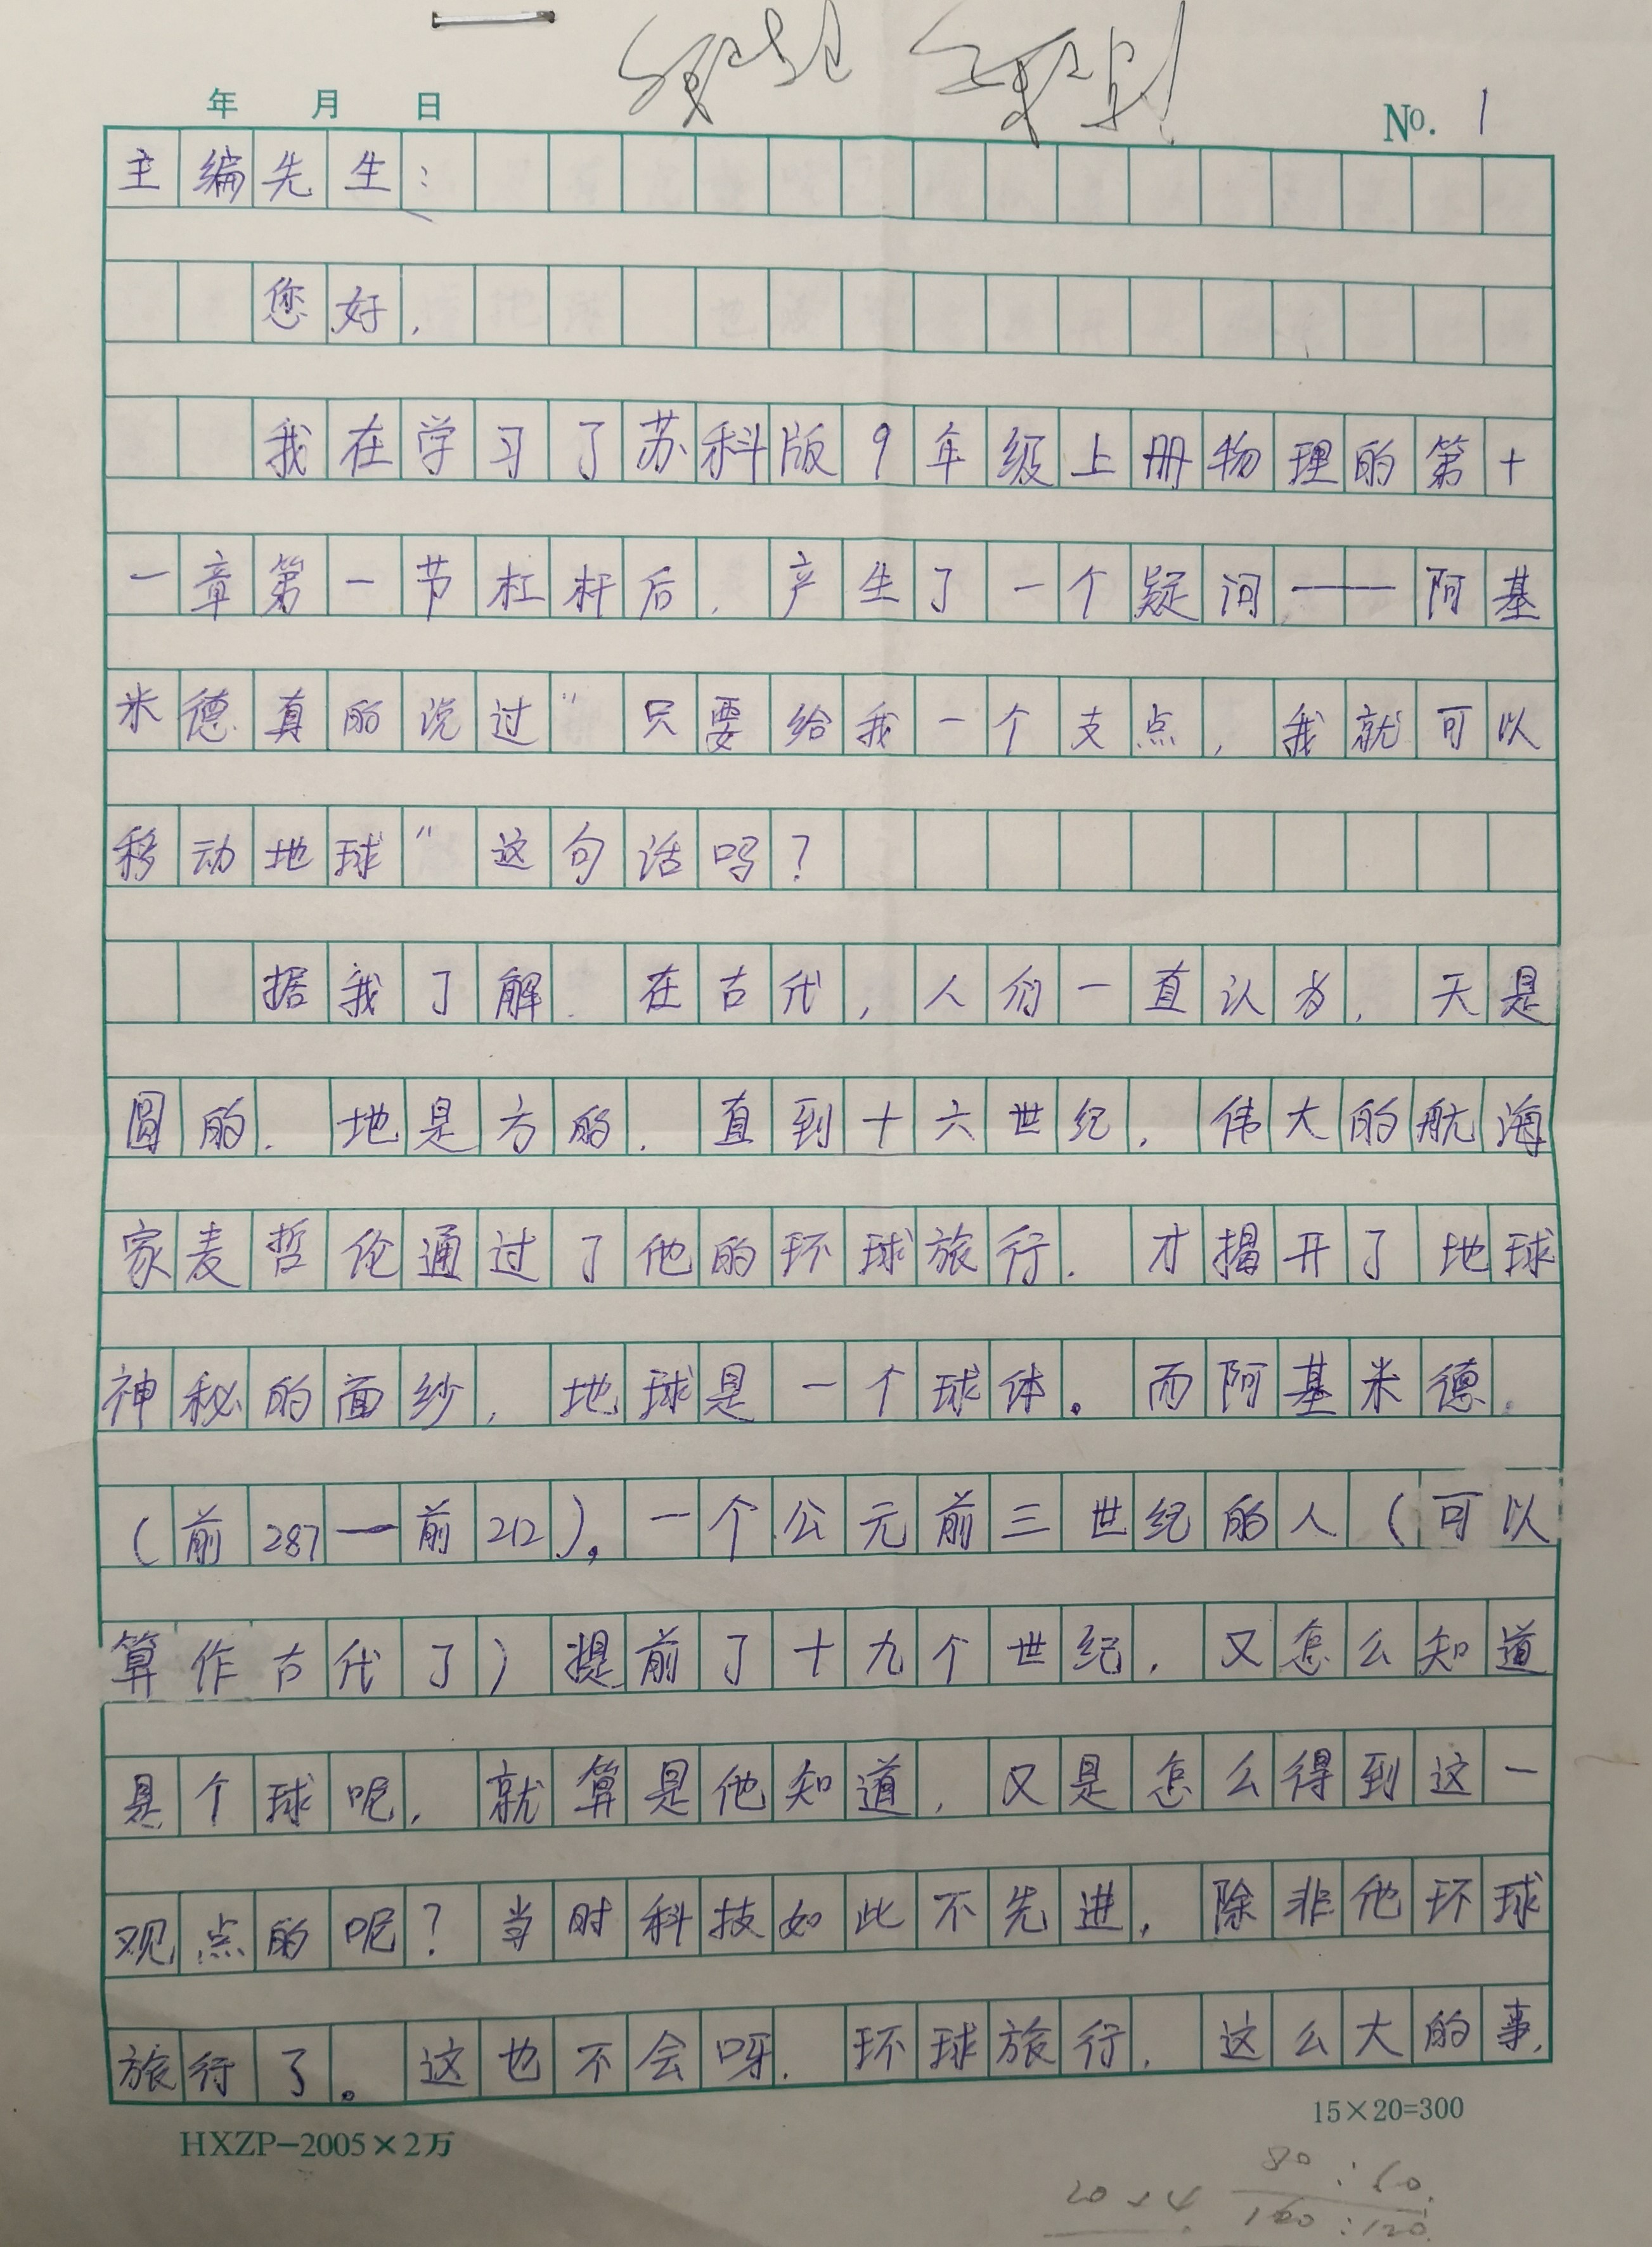 年 月 日
No. 1
主编先生：
您好，
我在学习了苏科版9年级上册物理的第十
一章第一节杠杆后，产生了一个疑问——阿基
米德真的说过“只要给我一个支点，我就可以
移动地球”这句话吗？
据我了解，在古代，人们一直认为，天是
圆的，地是方的，直到十六世纪，伟大的航海
家麦哲伦通过了他的环球旅行，才揭开了地球
神秘的面纱，地球是一个球体。而阿基米德，
（前287—前212），一个公元前三世纪的人（可以
算作古代了）提前了十九个世纪，又怎么知道
是个球呢，就算是他知道，又是怎么得到这一
观点的呢？当时科技如此不先进，除非他环球
旅行了。这也不会呀，环球旅行，这么大的事，
15×20=300
HXZP-2005×2万
80：60
20×4
160：120